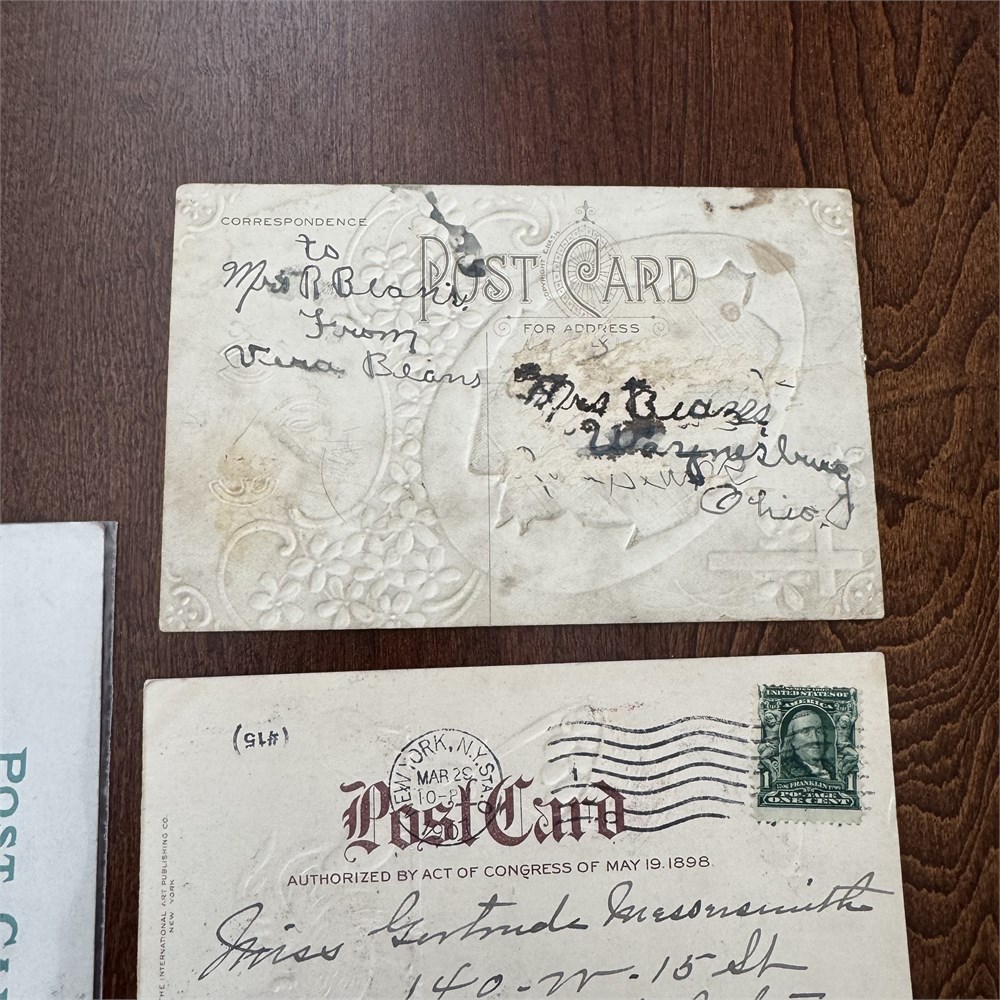 CORRESPONDENCE
to
Mrs R Beans
From
Vera Beans
POST CARD
FOR ADDRESS
Mrs Beans
Waynesburg
Ohio.
(#15)
NEW YORK, N.Y. STA.
MAR 29
10-P
SERIES 1902
UNITED STATES OF
AMERICA
1 FRANKLIN 1
POSTAGE
ONE CENT
Post Card
AUTHORIZED BY ACT OF CONGRESS OF MAY 19. 1898.
THE INTERNATIONAL ART PUBLISHING CO.
NEW YORK
Miss Gertrude Messersmith
140-W-15 St
POST